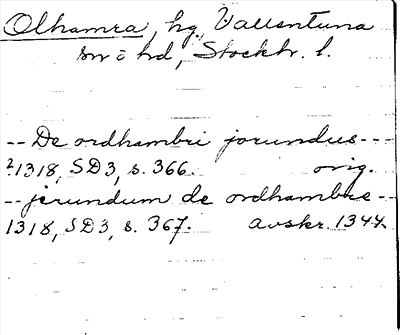 Olhamra, hg., Vallentuna
sn o hd, Stockh. l.
-- De ordhambri jorundus --
?1318, SD3, s. 366. orig.
-- jerundum de ordhambre --
1318, SD3, s. 367. avskr. 1344.